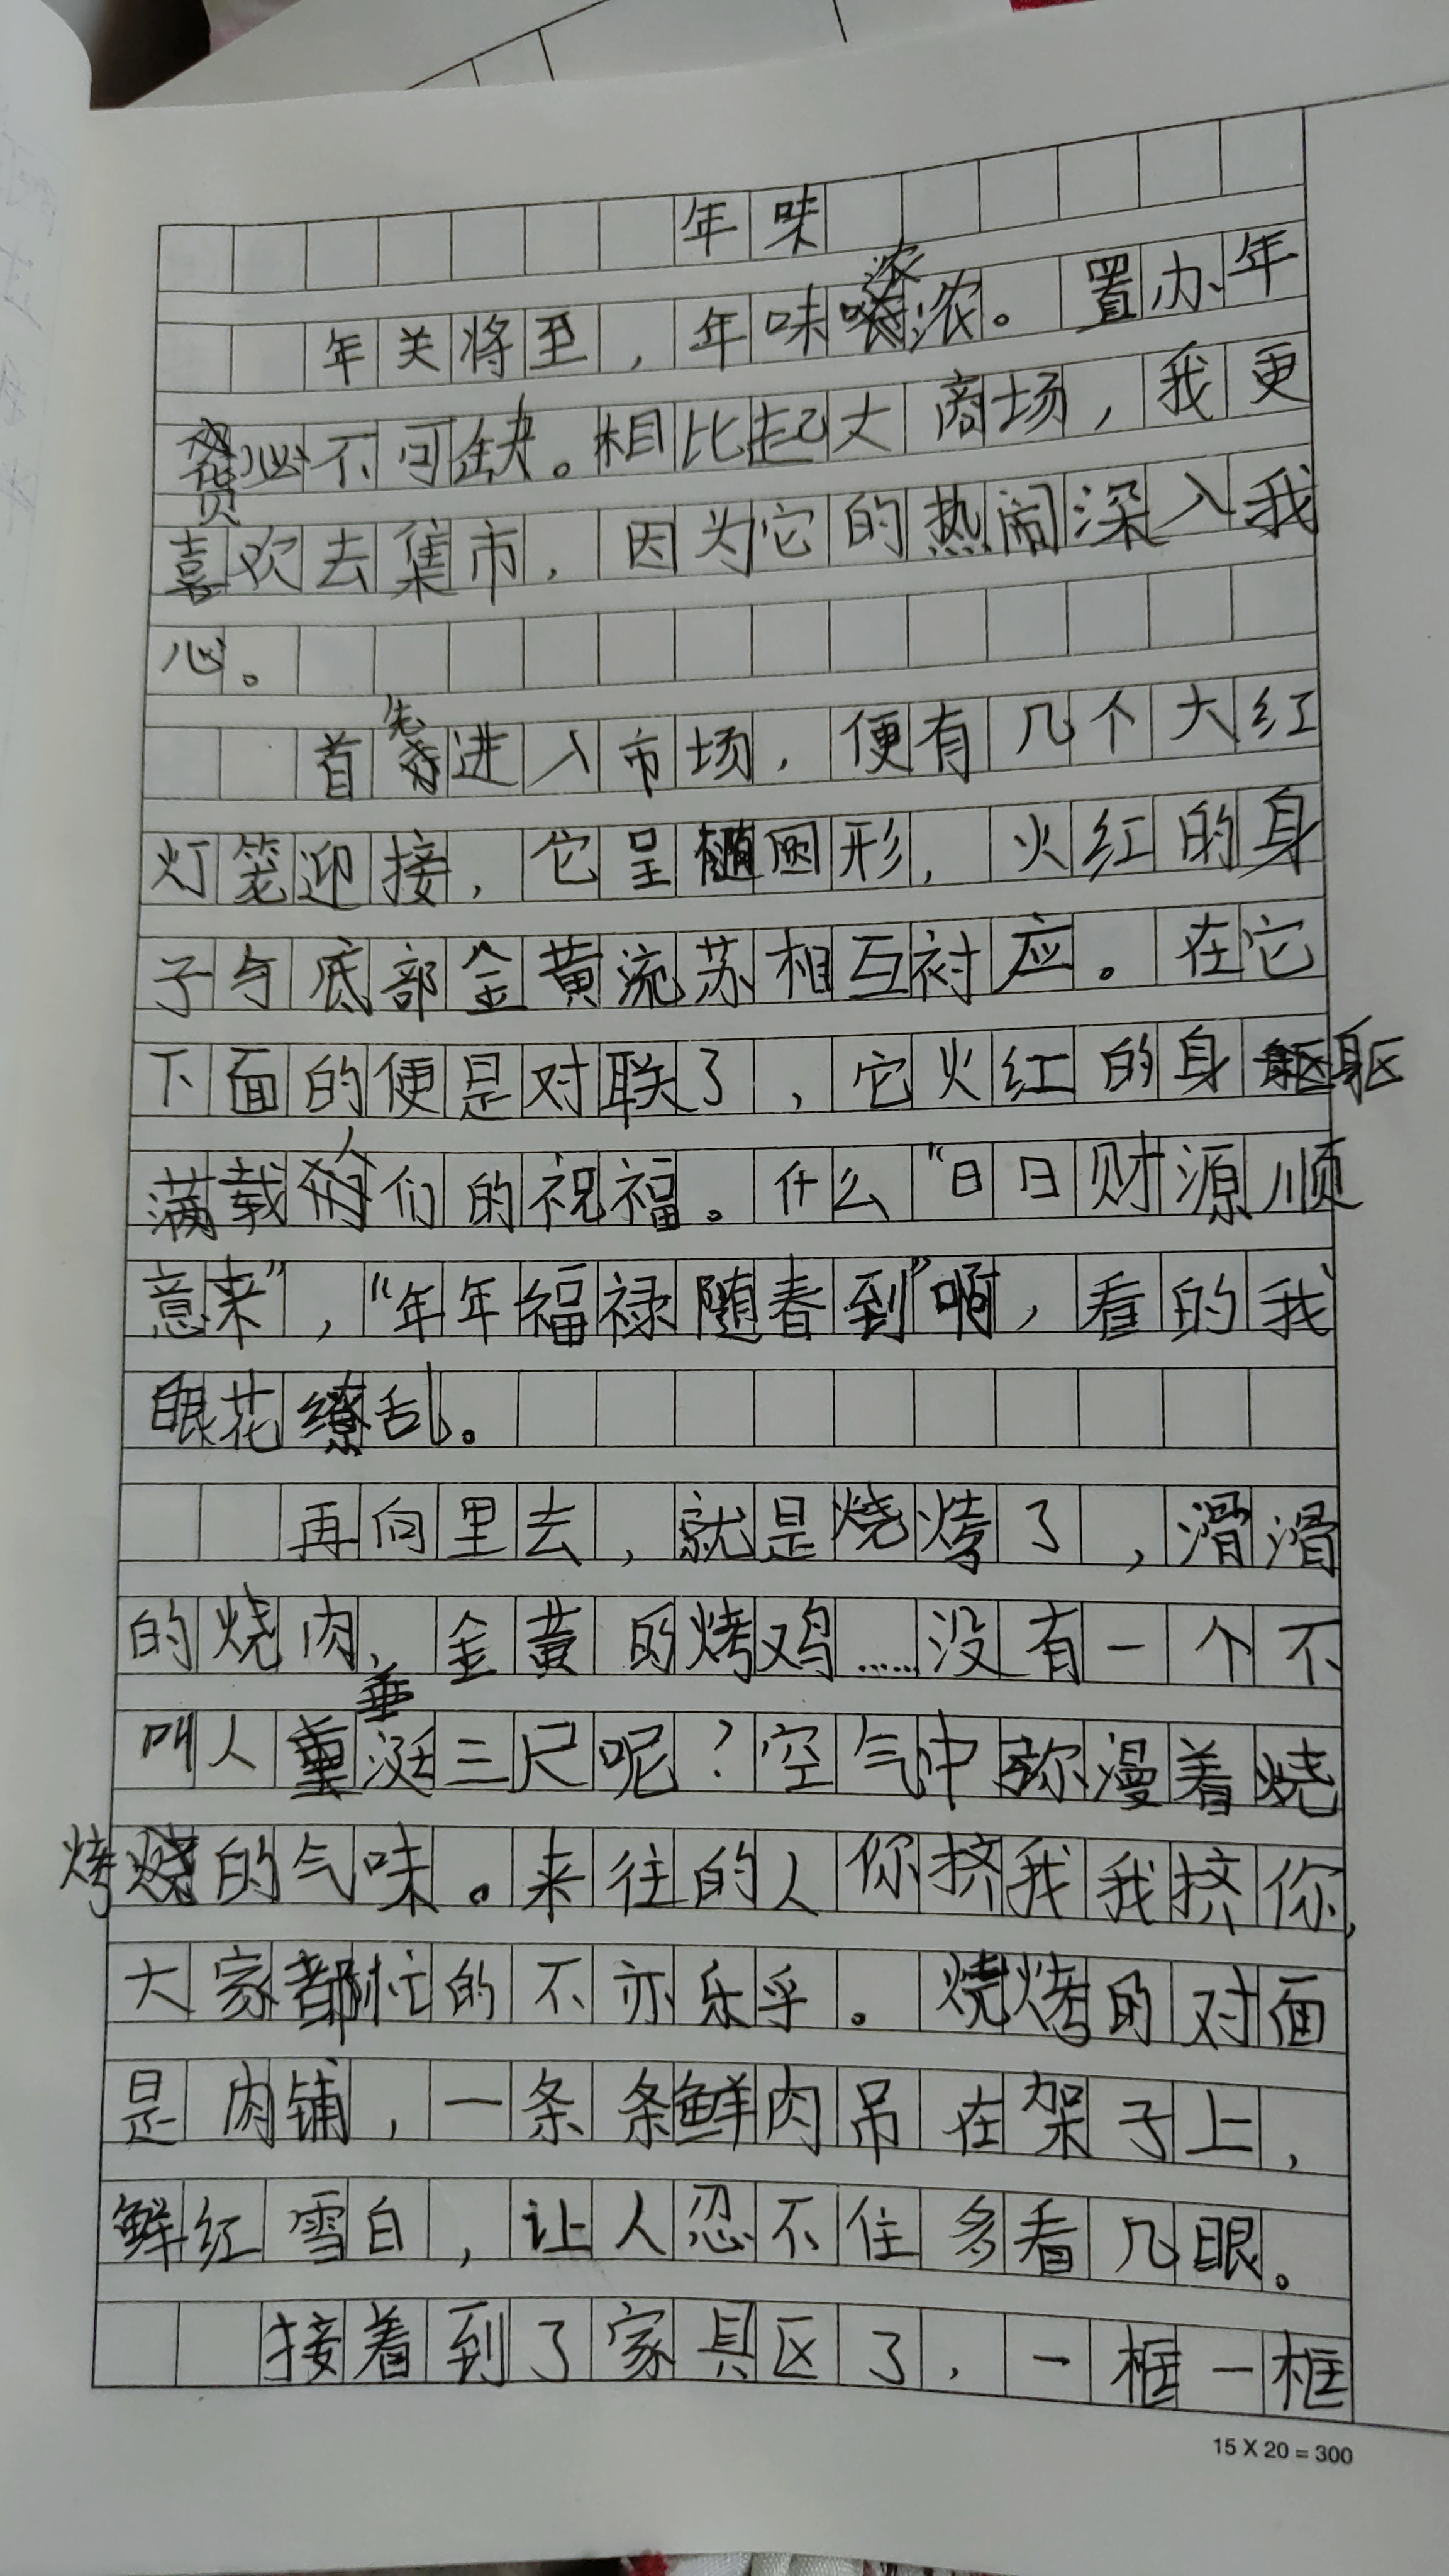 年味
年关将至，年味浓浓。置办年
货必不可缺。相比起大商场，我更
喜欢去集市，因为它的热闹深入我
心。
首先进入市场，便有几个大红
灯笼迎接，它呈椭圆形，火红的身
子与底部金黄流苏相互衬应。在它
下面的便是对联了，它火红的身躯
满载人们的祝福。什么“日日财源顺
意来”，“年年福禄随春到”啊，看的我
眼花缭乱。
再向里去，就是烧烤了，滑滑
的烧肉、金黄的烤鸡……没有一个不
叫人垂涎三尺呢？空气中弥漫着烧
烤的气味。来往的人你挤我我挤你，
大家都忙的不亦乐乎。烧烤的对面
是肉铺，一条条鲜肉吊在架子上，
鲜红雪白，让人忍不住多看几眼。
接着到了家具区了，一框一框
15 X 20 = 300